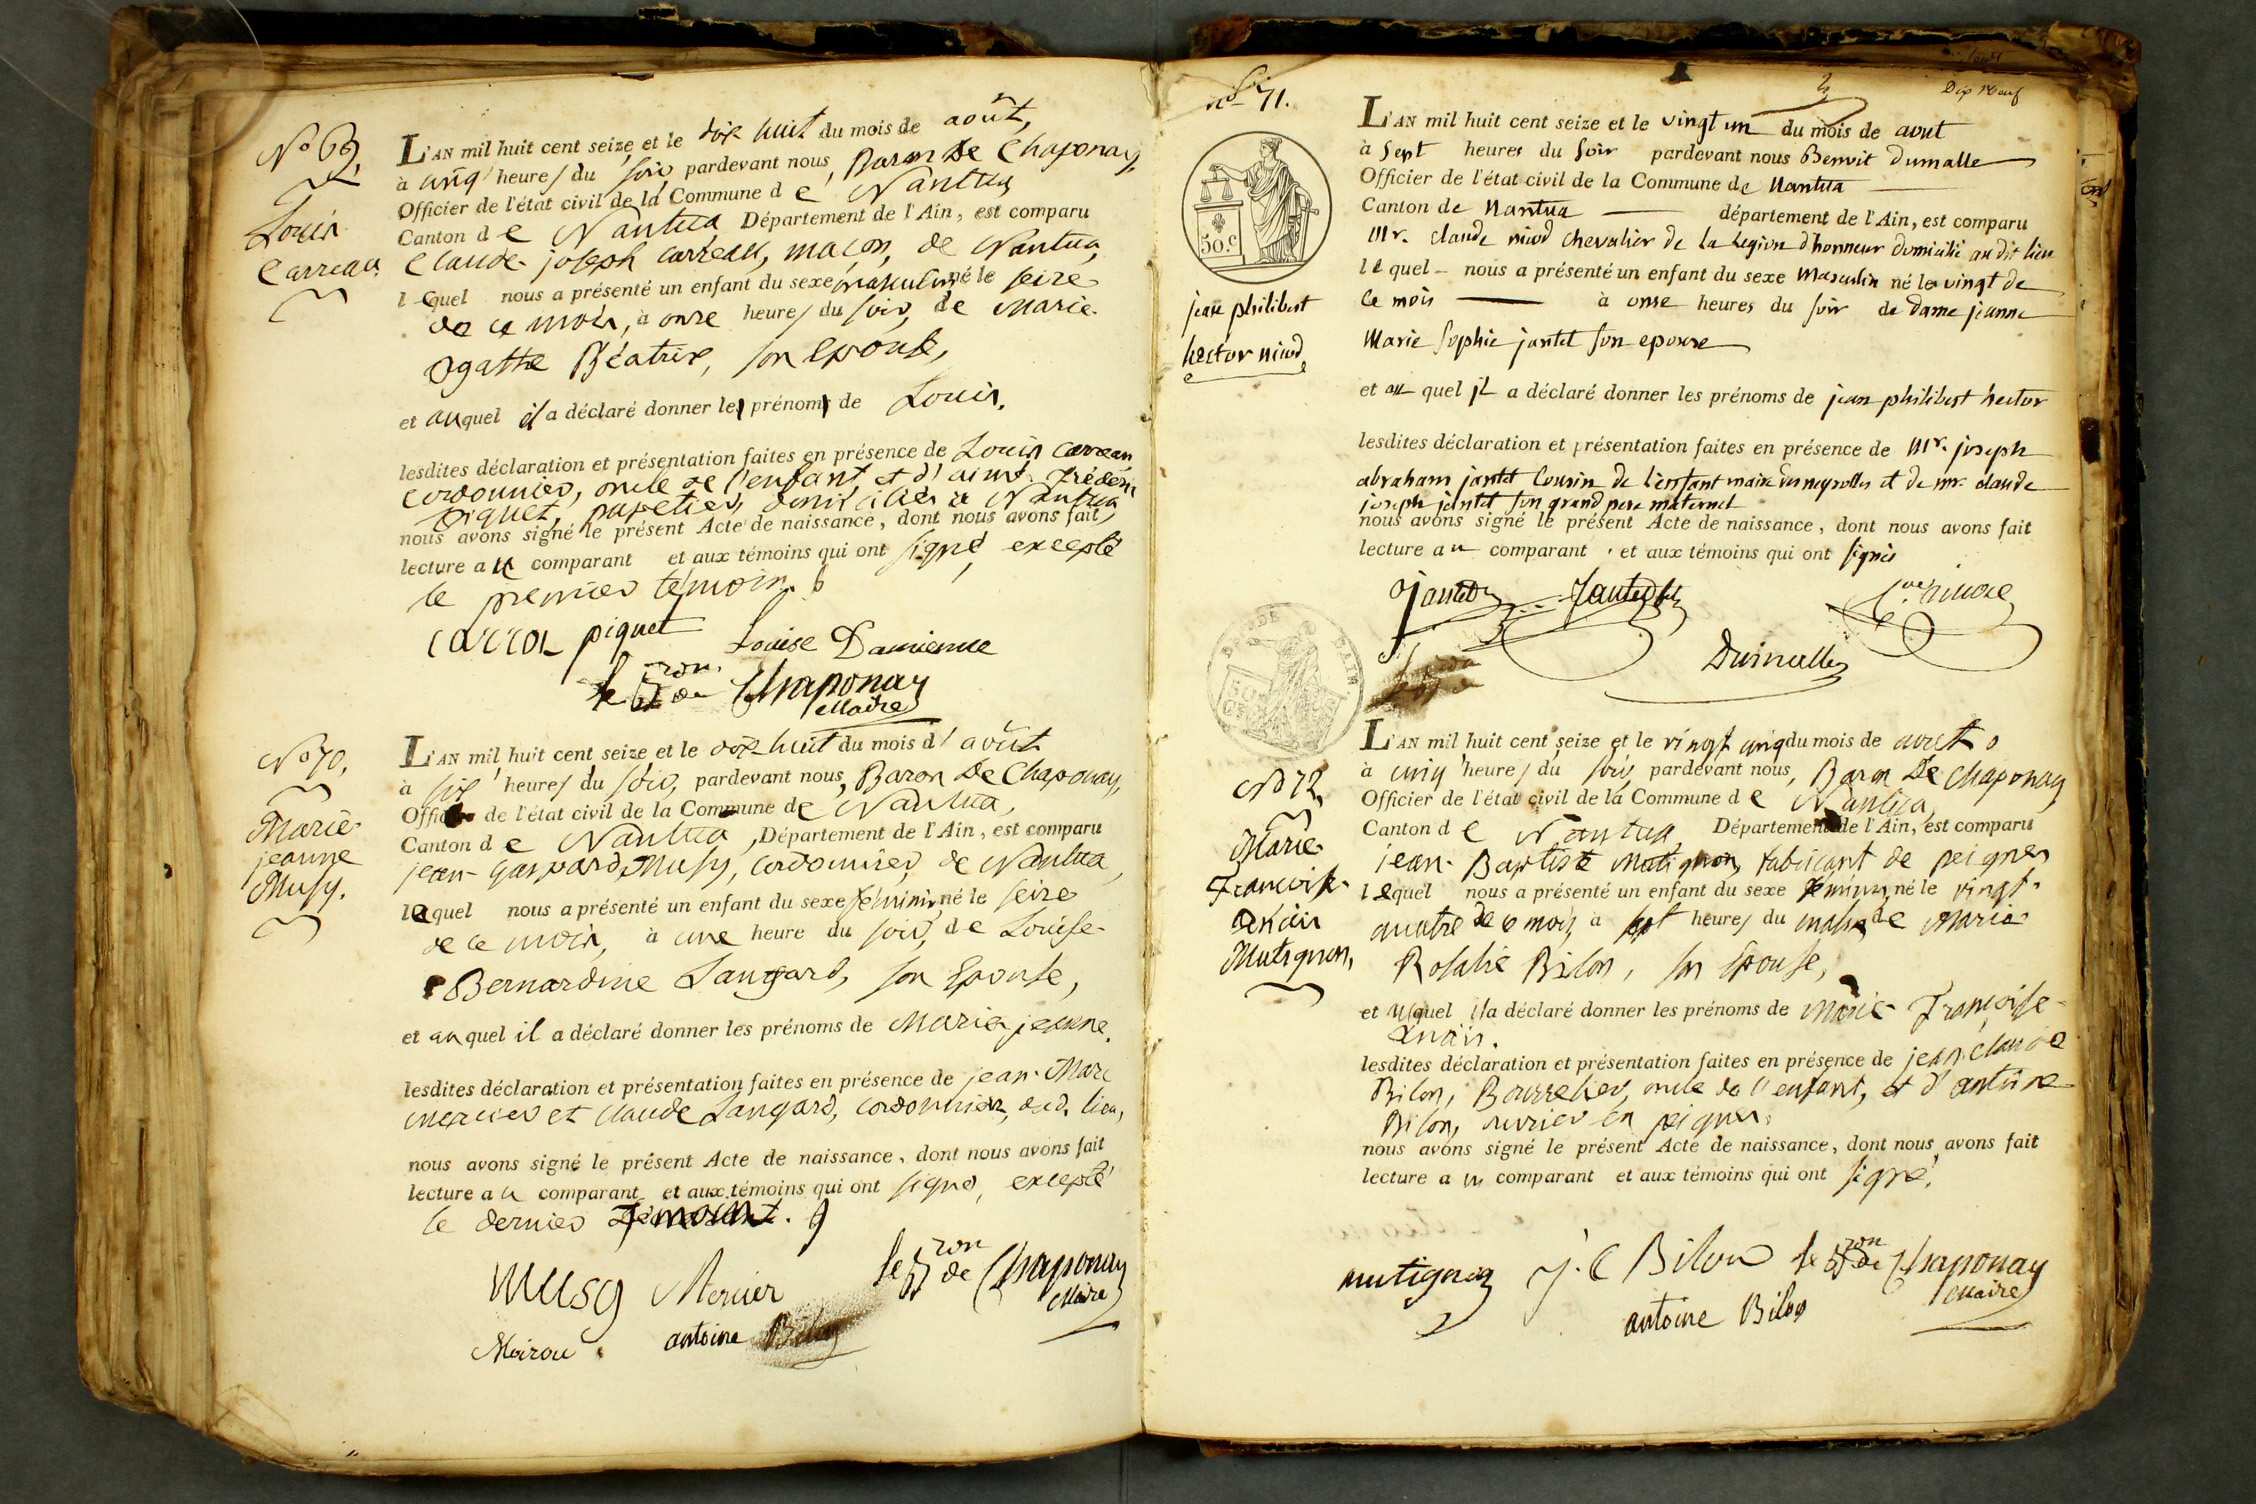 N° 69,
Louis
Carreau
L'AN mil huit cent seize et le dix huit du mois de août,
à cinq heures du soir pardevant nous, Baron De Chaponay,
Officier de l'état civil de la Commune de Nantua
Canton de Nantua Département de l'Ain, est comparu
Claude joseph carreau, maçon, de Nantua,
lequel nous a présenté un enfant du sexe masculin né le seize
de ce mois, à onze heures du soir, de Marie
Agathe Béatrix, son Epouse,
et auquel il a déclaré donner les prénoms de Louis.
lesdites déclaration et présentation faites en présence de Louis Carreau
cordonnier, oncle de l'enfant, et d'aimé Frédéric
Piquet, papetier, domiciliés à Nantua
nous avons signé le présent Acte de naissance, dont nous avons fait
lecture au comparant et aux témoins qui ont signé, excepté
le premier témoin.
piquet Louise Damienne
le Bron de Chaponay
Maire
N° 70,
Marie
jeanne
Musy.
L'AN mil huit cent seize et le dix huit du mois d'août
à six heures du soir, pardevant nous, Baron De Chaponay,
Officier de l'état civil de la Commune de Nantua,
Canton de Nantua, Département de l'Ain, est comparu
jean Gaspard Musy, cordonnier, de Nantua,
lequel nous a présenté un enfant du sexe féminin, né le seize
de ce mois, à une heure du soir, de Louise
Bernardine Langard, son Epouse,
et auquel il a déclaré donner les prénoms de Marie jeanne.
lesdites déclaration et présentation faites en présence de jean Marc
mercier et Claude Langard, cordonnier, dud. lieu,
nous avons signé le présent Acte de naissance, dont nous avons fait
lecture au comparant et aux témoins qui ont signé, excepté
le dernier témoin.
Musy Mercier le Bron de Chaponay
Maire
antoine Bilon
n° 71.
Dix Neuf
50 C
jean philibert
hector niod
L'AN mil huit cent seize et le vingt un du mois de aout
à Sept heures du Soir pardevant nous Benoit Dumalle
Officier de l'état civil de la Commune de Nantua
Canton de Nantua département de l'Ain, est comparu
Mr. claude niod chevalier de la Legion d'honneur domicilié au dit lieu
lequel nous a présenté un enfant du sexe Masculin né le vingt de
ce mois à onse heures du soir de dame jeanne
Marie Sophie jantet son epouse
et auquel il a déclaré donner les prénoms de jean philibert hector
lesdites déclaration et présentation faites en présence de Mr. joseph
abraham jantet Cousin de l'enfant maire du neyrolles et de mr. claude
joseph jantet son grand pere maternel
nous avons signé le présent Acte de naissance, dont nous avons fait
lecture au comparant et aux témoins qui ont signés
Jantet Jantet
Dumalle
N° 72,
Marie
Françoise
Mutignon,
L'AN mil huit cent seize et le vingt cinq du mois de août
à cinq heures du soir, pardevant nous, Baron De Chaponay
Officier de l'état civil de la Commune de Nantua,
Canton de Nantua Département de l'Ain, est comparu
jean Baptiste Mutignon, fabricant de peignes
lequel nous a présenté un enfant du sexe féminin, né le vingt
quatre de ce mois, à sept heures du matin, de Marie
Rosalie Bilon, son Epouse,
et auquel il a déclaré donner les prénoms de Marie Françoise
lesdites déclaration et présentation faites en présence de jean Claude
Bilon, Bourrelier, oncle de l'enfant, et d'antoine
Bilon, ouvrier en peignes,
nous avons signé le présent Acte de naissance, dont nous avons fait
lecture au comparant et aux témoins qui ont signé.
mutignon J. C Bilon le Bron de Chaponay
Maire
antoine Bilon